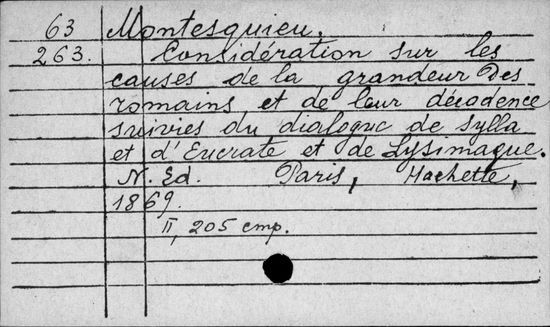 63 Montesquieu.
263. Considération sur les
causes de la grandeur des
romains et de leur décadence
suivies du dialogue de Sylla
et d'Eucrate et de Lysimaque.
N. Ed. Paris, Hachette,
1869.
II, 205 стр.